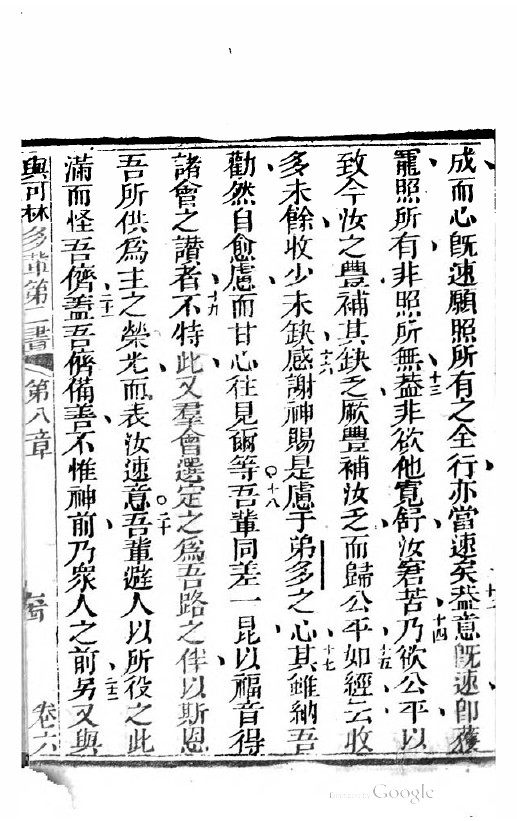 成而心旣速願照所有之全行亦當速矣葢意旣速卽獲
寵照所有非照所無葢非欲他寬舒汝窘苦乃欲公平以
致今汝之豐補其缺乏厥豐補汝乏而歸公平如經云收
多未餘收少未缺感謝神賜是慮于弟多之心其雖納吾
勸然自愈慮而甘心往見爾等吾輩同差一昆以福音得
諸會之讃者不特此又羣會選定之爲吾路之伴以斯恩
吾所供爲主之榮光而表汝速意吾輩避人以所役之此
滿而怪吾儕蓋吾儕備善不惟神前乃衆人之前另又與
與可林多輩第二書 第八章 卷六
十二
十三
十四
十五
十六
十七
十八
十九
二十
二十一
二十二
Digitized by Google